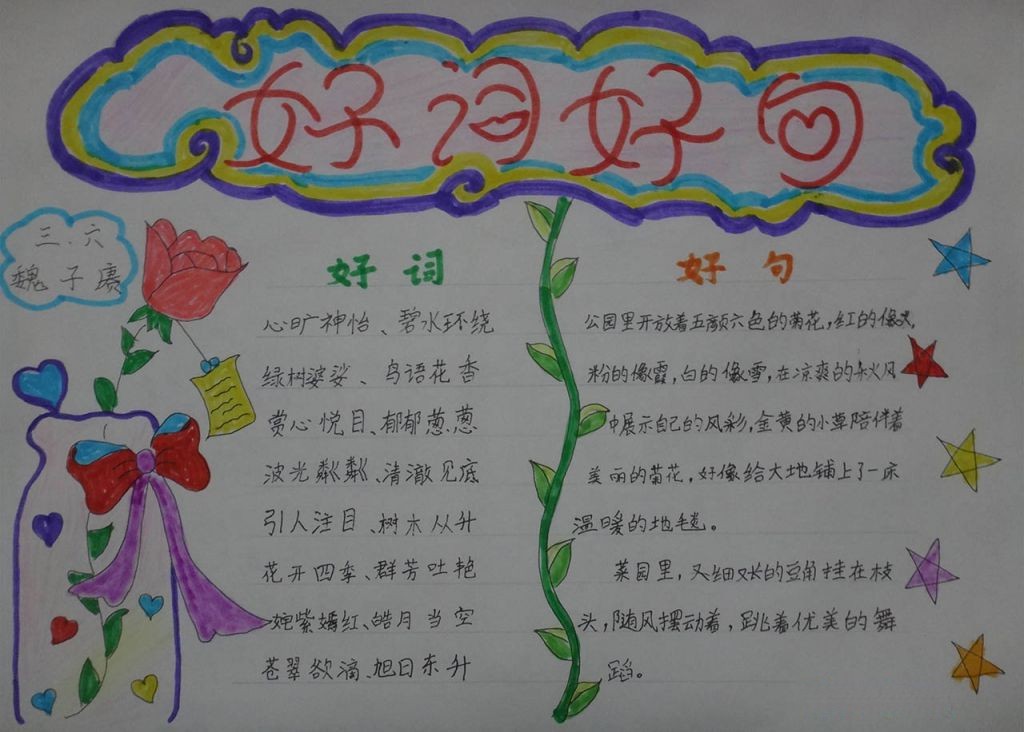 好词好句
三.六
魏子赓
好词
心旷神怡、碧水环绕
绿树婆娑、鸟语花香
赏心悦目、郁郁葱葱
波光粼粼、清澈见底
引人注目、树木丛升
花开四季、群芳吐艳
姹紫嫣红、皓月当空
苍翠欲滴、旭日东升
好句
公园里开放着五颜六色的菊花,红的像火,
粉的像霞,白的像雪,在凉爽的秋风
中展示自己的风彩,金黄的小草陪伴着
美丽的菊花,好像给大地铺上了一床
温暖的地毯。
菜园里,又细又长的豆角挂在枝
头,随风摆动着,跳着优美的舞
蹈。